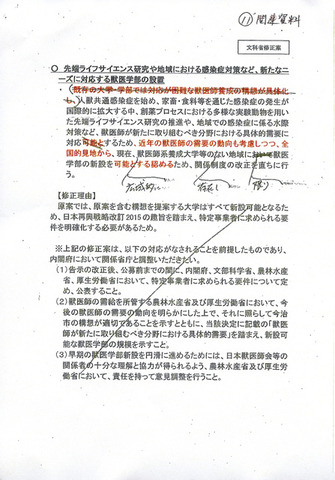 ⑪関連資料
文科省修正案
○ 先端ライフサイエンス研究や地域における感染症対策など、新たなニ
ーズに対応する獣医学部の設置
・ 既存の大学・学部では対応が困難な獣医師養成の構想が具体化
し、人獣共通感染症を始め、家畜・食料等を通じた感染症の発生が
国際的に拡大する中、創薬プロセスにおける多様な実験動物を用い
た先端ライフサイエンス研究の推進や、地域での感染症に係る水際
対策など、獣医師が新たに取り組むべき分野における具体的需要に
対応可能とするため、近年の獣医師の需要の動向も考慮しつつ、全
国的見地から、現在、獣医師系養成大学等のない地域において獣医
学部の新設を可能とする認めるため、関係制度の改正を直ちに行
う。
広域的に
存在し
限り
【修正理由】
原案では、原案を含む構想を提案する大学はすべて新設可能となるた
め、日本再興戦略改訂2015の趣旨を踏まえ、特定事業者に求められる要
件を明確化する必要があるため。
※上記の修正案は、以下の対応がなされることを前提したものであり、
内閣府において関係省庁と調整いただきたい。
(1)告示の改正後、公募前までの間に、内閣府、文部科学省、農林水産
省、厚生労働省において、特定事業者に求められる要件について定
め、公表すること。
(2)獣医師の需給を所管する農林水産省及び厚生労働省において、今
後の獣医師の需要の動向を明らかにした上で、それに照らして今治
市の構想が適切であることを示すとともに、当該決定に記載の「獣医
師が新たに取り組むべき分野における具体的需要」を踏まえ、新設可
能な獣医学部の規模を示すこと。
(3)早期の獣医学部新設を円滑に進めるためには、日本獣医師会等の
関係者の十分な理解と協力が得られるよう、農林水産省及び厚生労
働省において、責任を持って意見調整を行うこと。